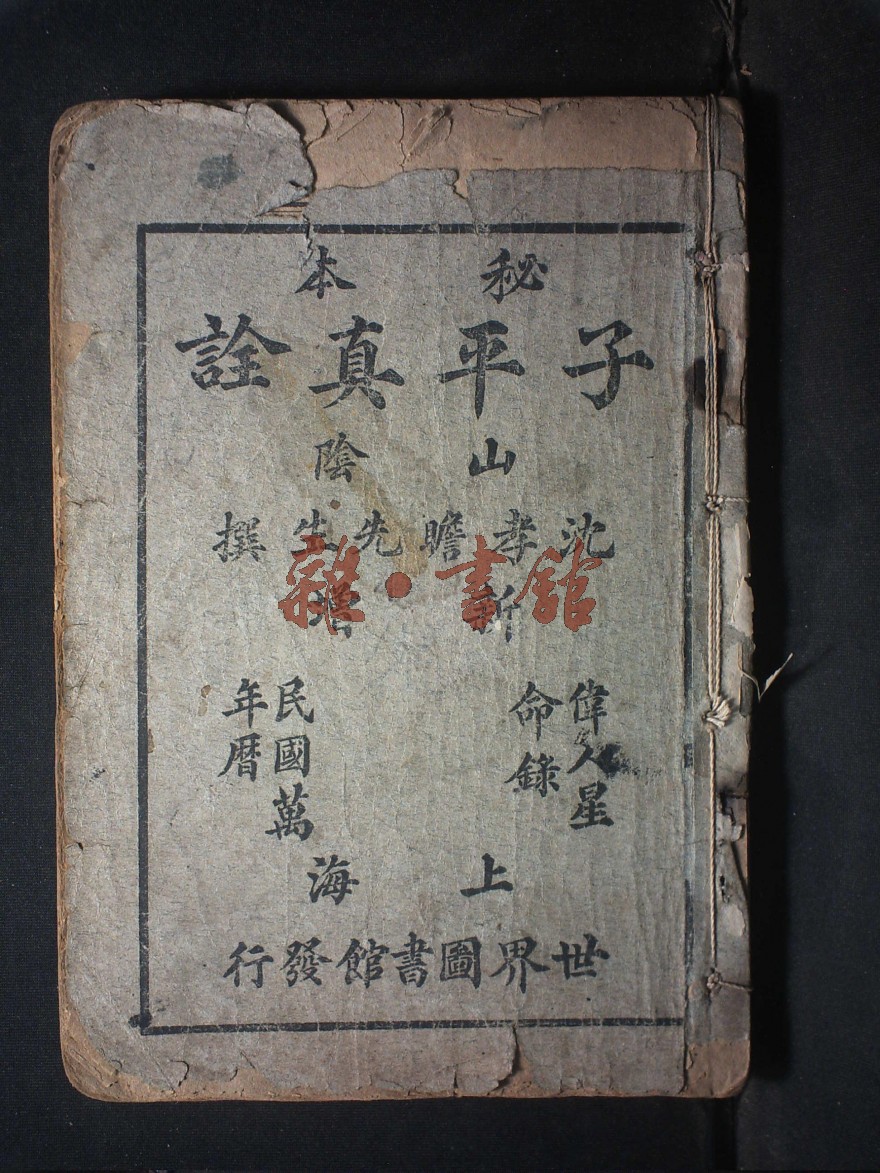 秘本
子平真詮
山陰
沈孝瞻先生撰
新增
偉人星
命錄
民國萬
年曆
上海
世界圖書館發行
雜·書館